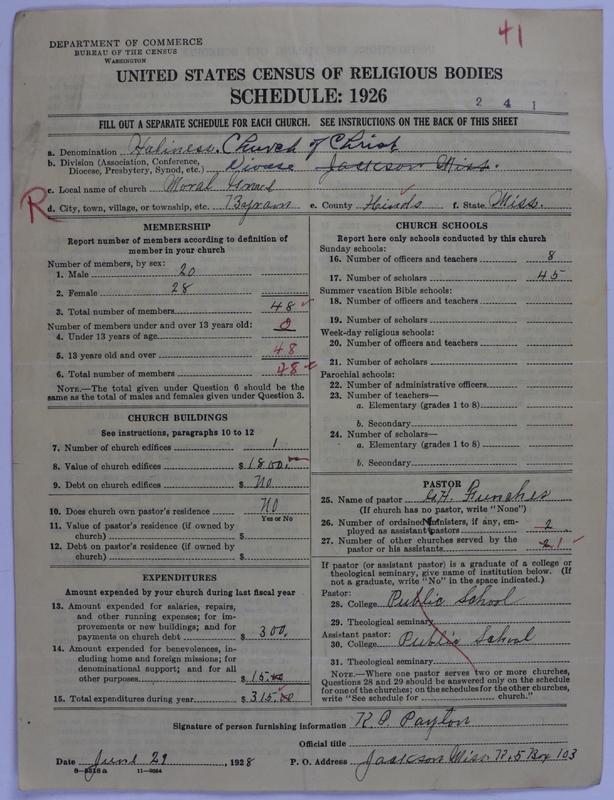 41
DEPARTMENT OF COMMERCE
BUREAU OF THE CENSUS
WASHINGTON
UNITED STATES CENSUS OF RELIGIOUS BODIES
SCHEDULE: 1926
2 4 1
FILL OUT A SEPARATE SCHEDULE FOR EACH CHURCH. SEE INSTRUCTIONS ON THE BACK OF THIS SHEET
a. Denomination Holiness. Church of Christ
b. Division (Association, Conference, Diocese, Presbytery, Synod, etc.) Diocese Jackson Miss.
c. Local name of church Morat
R d. City, town, village, or township, etc. Byram e. County Hinds f. State Miss.
MEMBERSHIP
Report number of members according to definition of
member in your church
Number of members, by sex:
1. Male 20
2. Female 28
3. Total number of members 48
Number of members under and over 13 years old:
4. Under 13 years of age 0
5. 13 years old and over 48
6. Total number of members 48
NOTE.—The total given under Question 6 should be
same as the total of males and females given under Question 3.
CHURCH BUILDINGS
See instructions, paragraphs 10 to 12
7. Number of church edifices 1
8. Value of church edifices $ 1800.
9. Debt on church edifices $ No
10. Does church own pastor's residence No
Yes or No
11. Value of pastor's residence (if owned by
church) $
12. Debt on pastor's residence (if owned by
church) $
EXPENDITURES
Amount expended by your church during last fiscal year
13. Amount expended for salaries, repairs,
and other running expenses; for im-
provements or new buildings; and for
payments on church debt $ 300.
14. Amount expended for benevolences, in-
cluding home and foreign missions; for
denominational support; and for all
other purposes $ 15.00
15. Total expenditures during year $ 315.00
CHURCH SCHOOLS
Report here only schools conducted by this church
Sunday schools:
16. Number of officers and teachers 8
17. Number of scholars 45
Summer vacation Bible schools:
18. Number of officers and teachers
19. Number of scholars
Week-day religious schools:
20. Number of officers and teachers
21. Number of scholars
Parochial schools:
22. Number of administrative officers
23. Number of teachers—
a. Elementary (grades 1 to 8)
b. Secondary
24. Number of scholars—
a. Elementary (grades 1 to 8)
b. Secondary
PASTOR
25. Name of pastor G.H. Funches
(If church has no pastor, write "None")
26. Number of ordained ministers, if any, em-
ployed as assistant pastors 2
27. Number of other churches served by the
pastor or his assistants 2 1
If pastor (or assistant pastor) is a graduate of a college or
theological seminary, give name of institution below. (If
not a graduate, write "No" in the space indicated.)
Pastor:
28. College Public School
29. Theological seminary
Assistant pastor:
30. College Public School
31. Theological seminary
NOTE.—Where one pastor serves two or more churches,
Questions 28 and 29 should be answered only on the schedule
for one of the churches; on the schedules for the other churches,
write "See schedule for church."
Signature of person furnishing information R. P. Payton
Official title
Date June 29, 1928 P. O. Address Jackson Miss R. 5 Box 103
8—5518a 11—9664